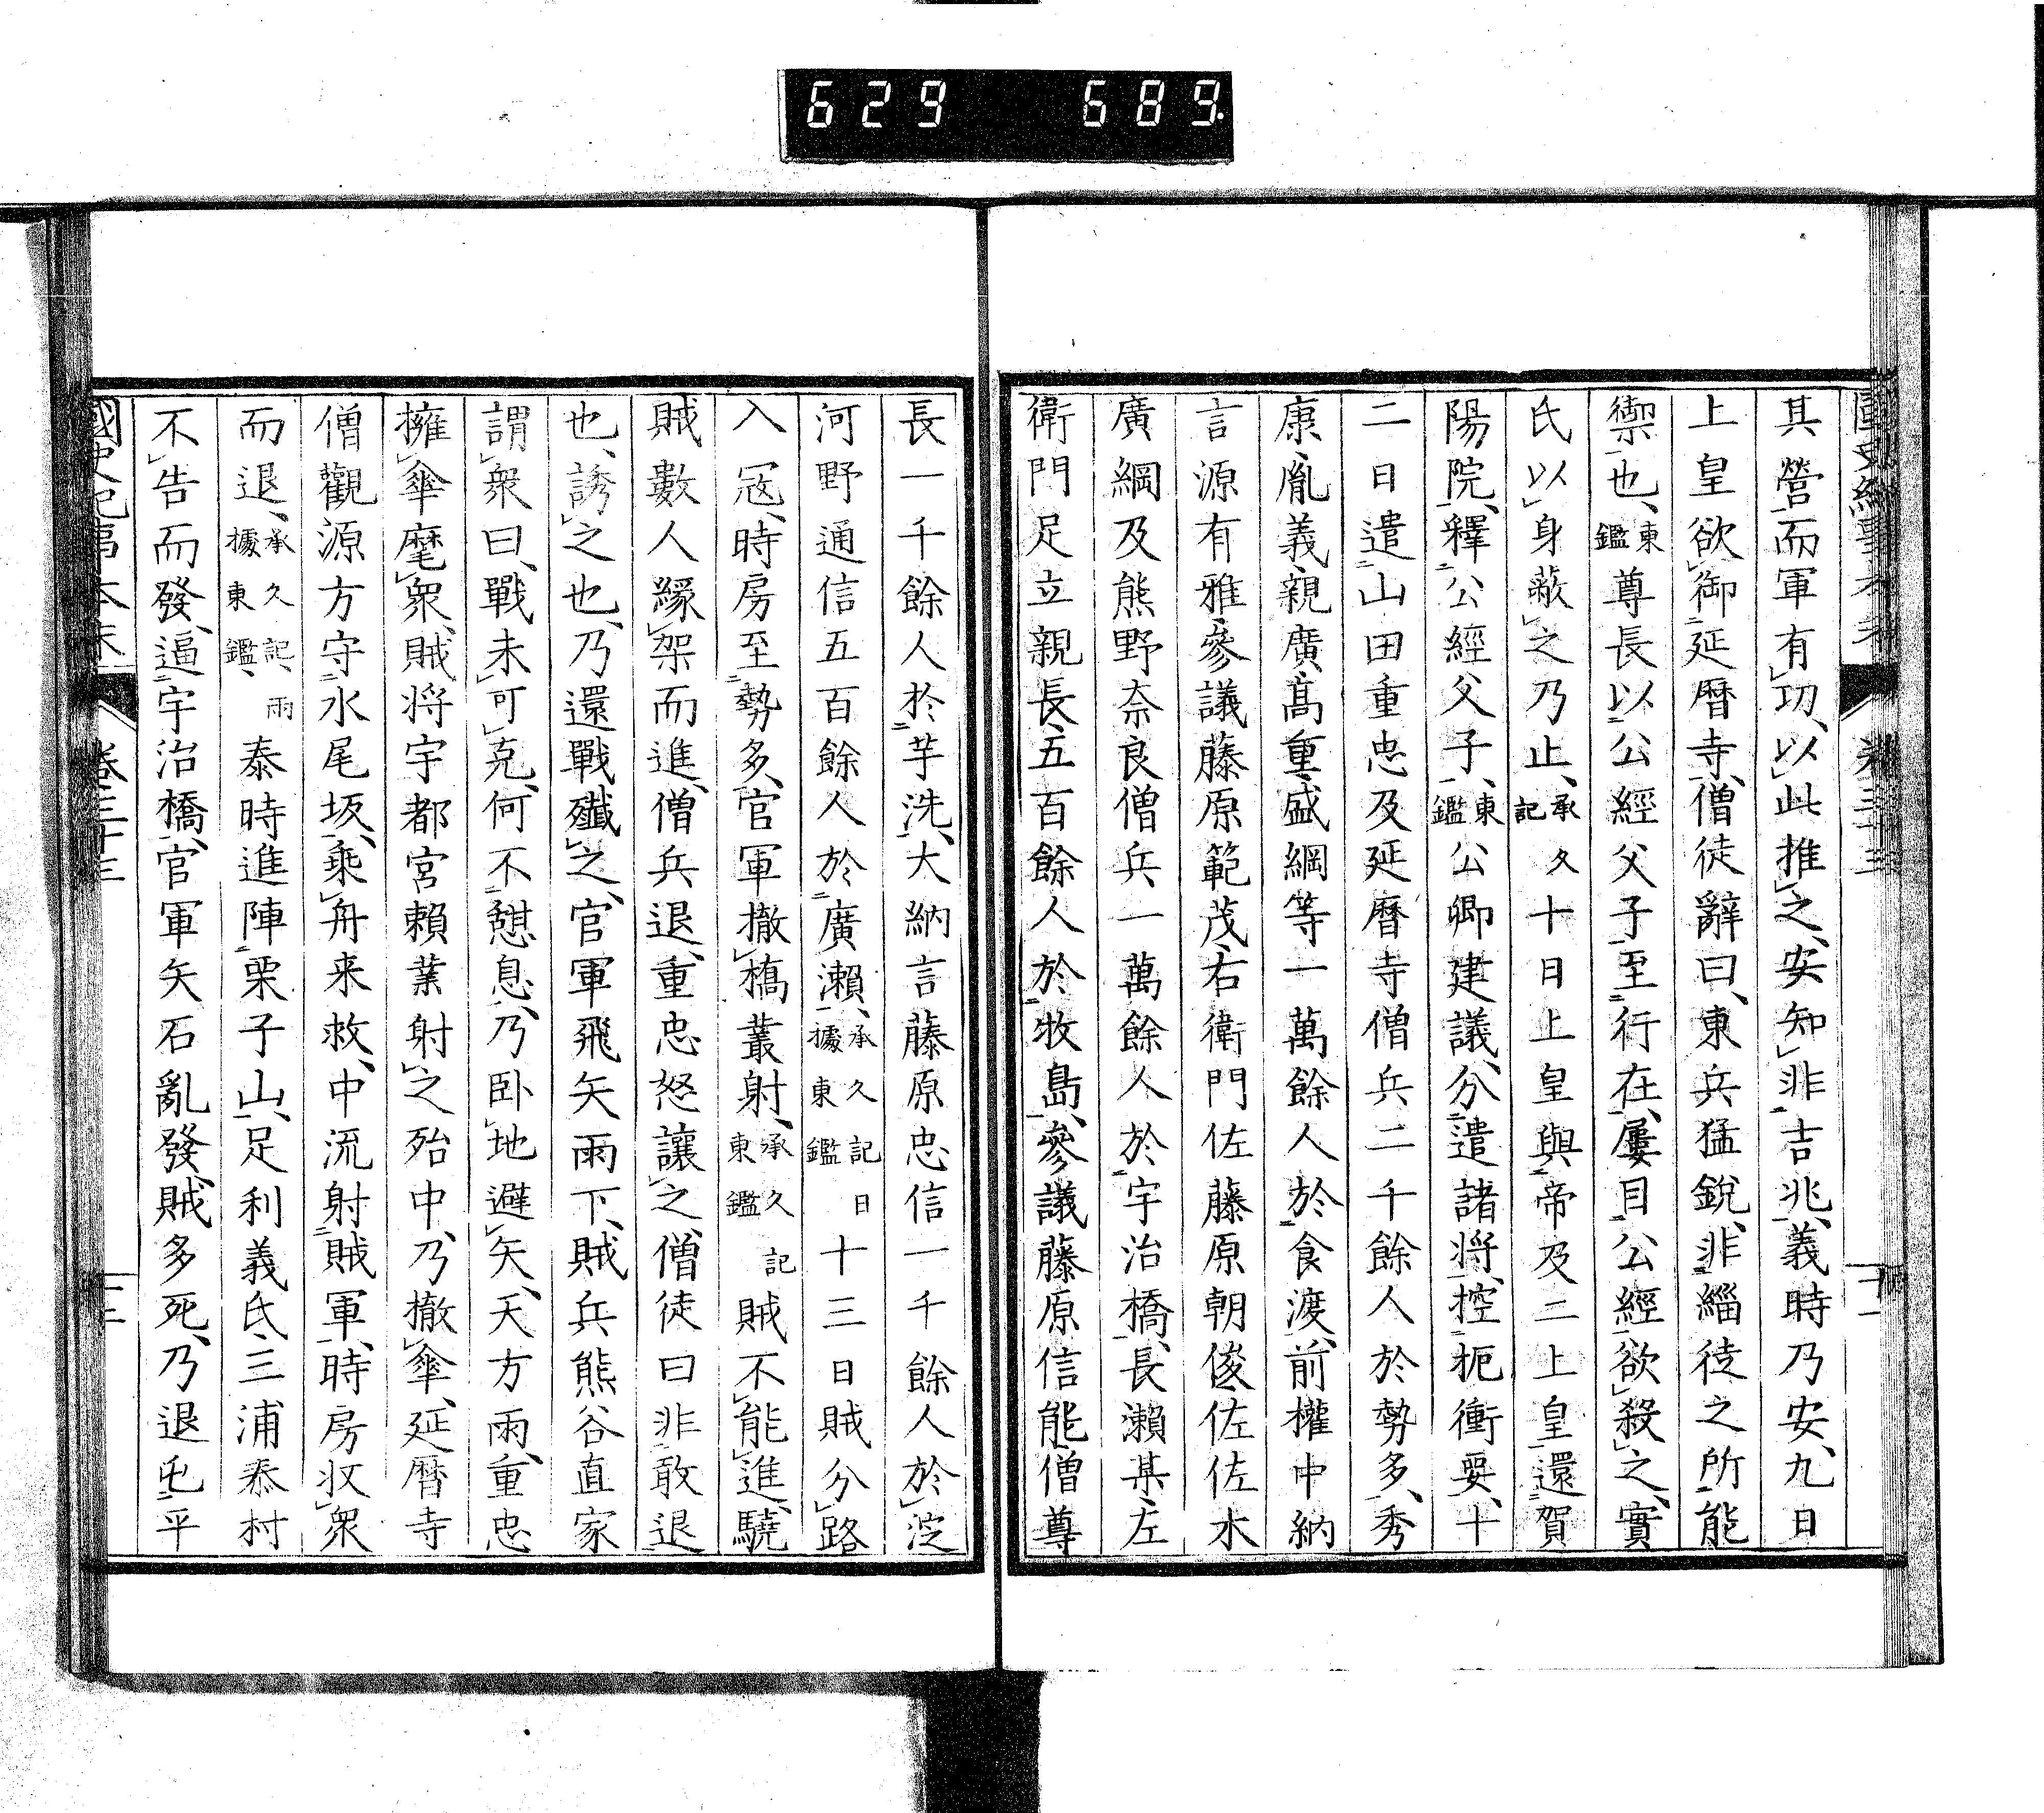 629 689.
其營而軍有功、以此推之、安知非吉兆、義時乃安、九日
上皇欲御延曆寺、僧徒辭曰、東兵猛銳、非緇徒之所能
禦也、東鑑尊長以公經父子至行在、屢目公經欲殺之、實
氏以身蔽之乃止、承久記十日上皇與帝及二上皇還賀
陽院、釋公經父子、東鑑公卿建議、分遣諸將、控扼衝要、十
二日遣山田重忠及延曆寺僧兵二千餘人於勢多、秀
康、胤義、親廣、高重、盛綱等一萬餘人於食渡、前權中納
言源有雅、參議藤原範茂、右衛門佐藤原朝俊、佐佐木
廣綱及熊野奈良僧兵一萬餘人於宇治橋、長瀨某、左
衛門足立親長、五百餘人於牧島、參議藤原信能、僧尊
長一千餘人於芋洗、大納言藤原忠信一千餘人於淀
河野通信五百餘人於廣瀨、承久記據東鑑日十三日賊分路
入冦、時房至勢多、官軍撤橋叢射、承久記東鑑賊不能進、驍
賊數人緣架而進、僧兵退、重忠怒讓之、僧徒曰非敢退
也、誘之也、乃還戰殲之、官軍飛矢雨下、賊兵熊谷直家
謂衆曰、戰未可克、何不憩息、乃卧地避矢、天方雨、重忠
擁傘麾衆、賊将宇都宮賴業射之殆中、乃撤傘、延曆寺
僧觀源方守水尾坂、乘舟来救、中流射賊軍、時房収衆
而退、承久記、據東鑑、雨泰時進陣栗子山、足利義氏、三浦泰村
不告而發、逼宇治橋、官軍矢石亂發、賊多死、乃退屯平
國史紀事本末 卷三十三